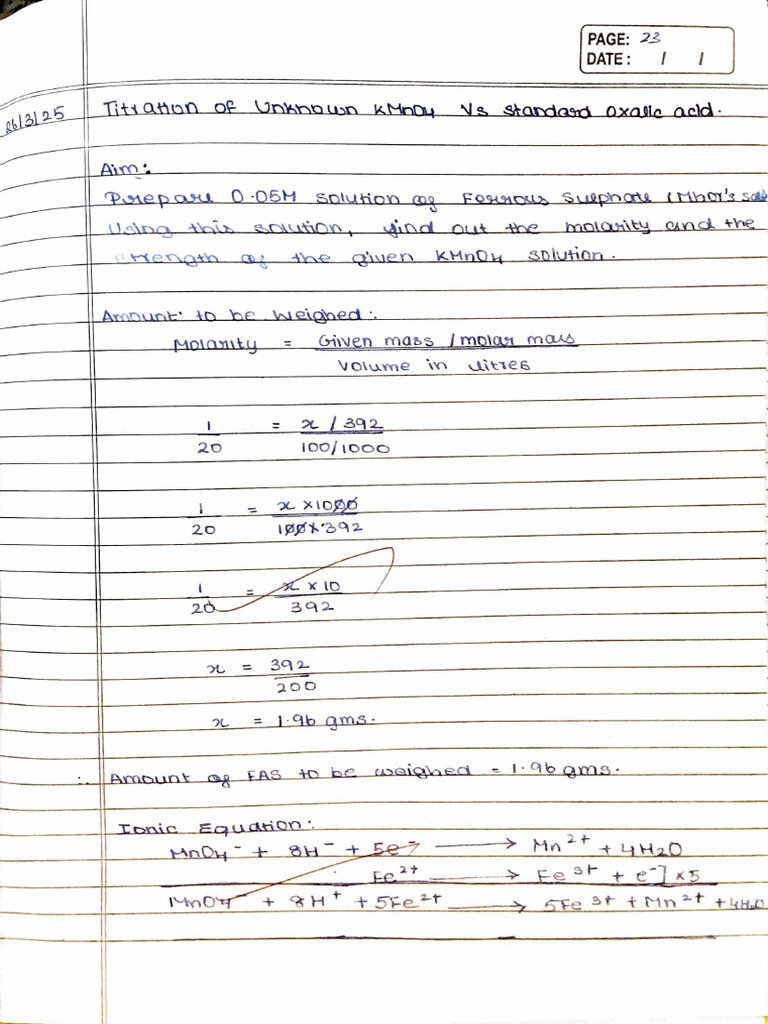 PAGE: 23
DATE: / /
26/3/25 Titration of Unknown KMnO4 Vs Standard Oxalic acid.
Aim:
Prepare 0.05M solution of Ferrous Sulphate (Mhor's
Using this solution, find out the molarity and the
strength of the given KMnO4 solution.
Amount to be weighed:
Molarity = Given mass / molar mass
Volume in litres
1 = x / 392
20 100/1000
1 = x × 1000
20 100 × 392
1 = x × 10
20 392
x = 392
200
x = 1.96 gms.
∴ Amount of FAS to be weighed = 1.96 gms.
Ionic Equation:
MnO4⁻ + 8H⁻ + 5e⁻ → Mn²⁺ + 4H2O
Fe²⁺ → Fe³⁺ + e⁻] × 5
MnO4⁻ + 8H⁺ + 5Fe²⁺ → 5Fe³⁺ + Mn²⁺ + 4H2O